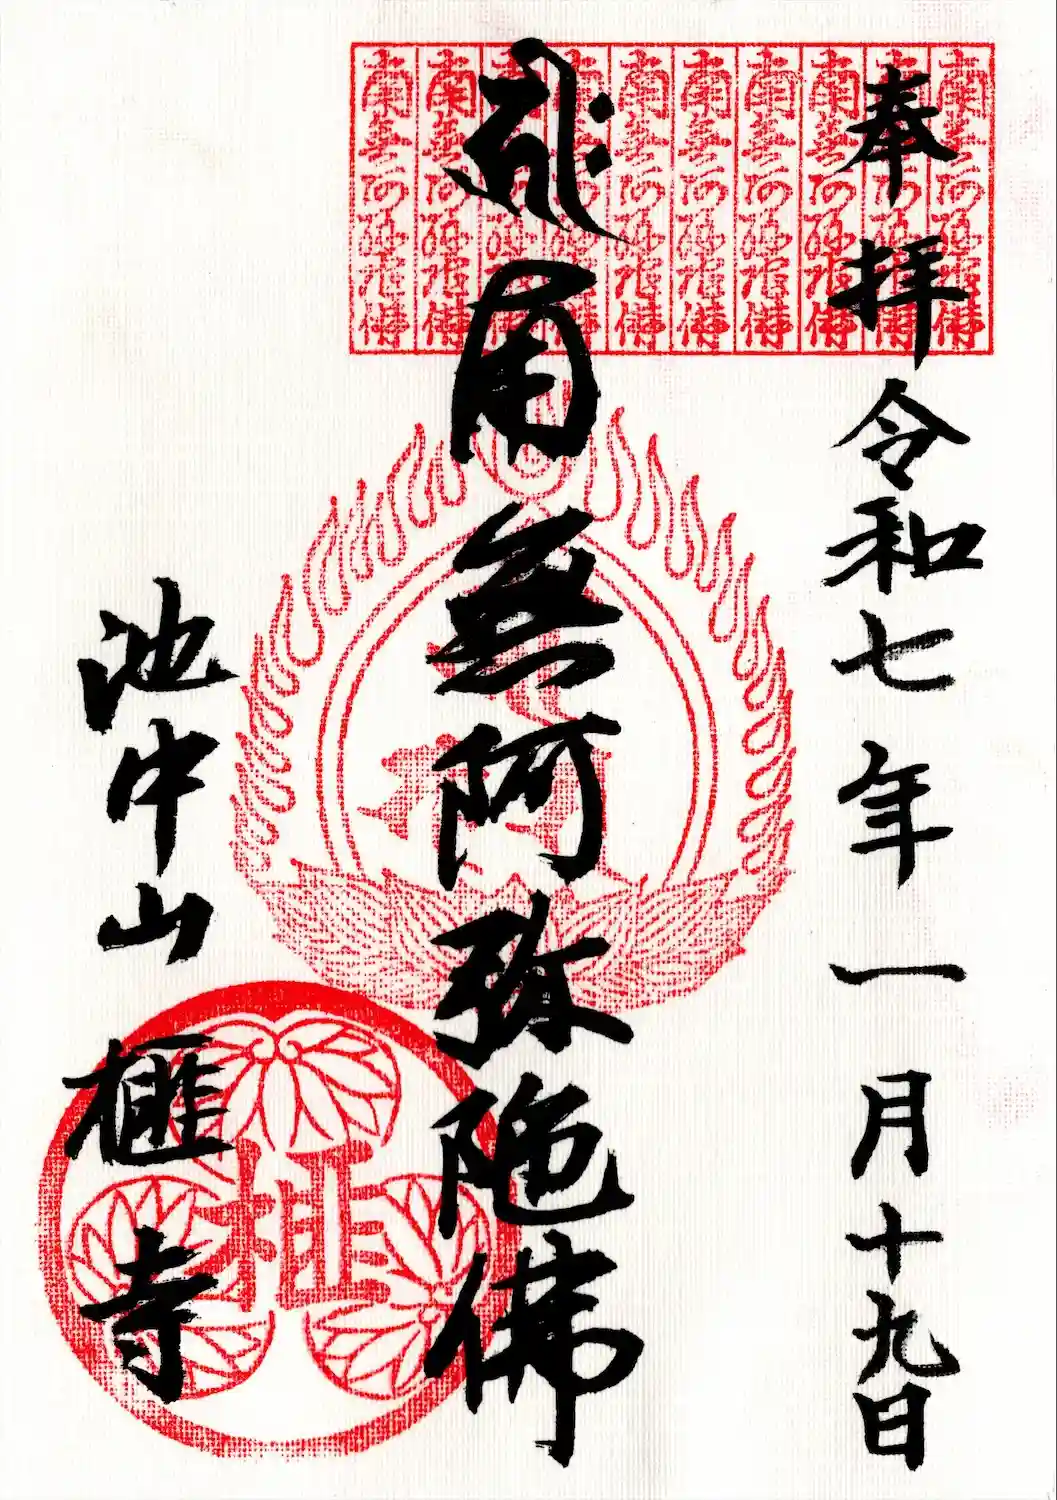 奉拝 令和七年一月十九日
南無阿弥陀佛
南無阿弥陀佛
南無阿弥陀佛
南無阿弥陀佛
南無阿弥陀佛
南無阿弥陀佛
南無阿弥陀佛
南無阿弥陀佛
南無阿弥陀佛
南無阿弥陀佛
𑖮𑖿𑖨𑖱𑖾 南無阿弥陀佛
池中山 榧寺
榧